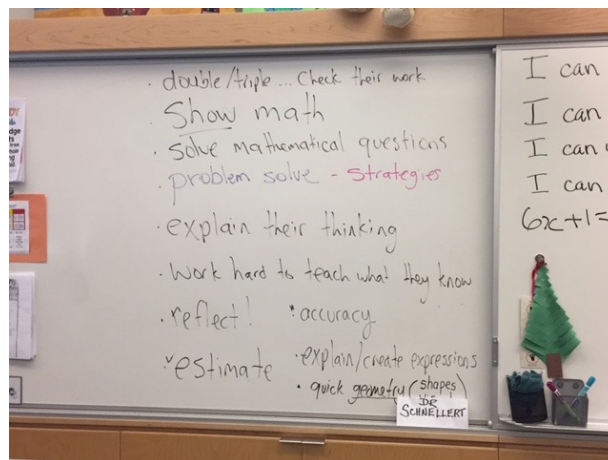 · double/triple... Check their work
· Show math
· solve mathematical questions
· problem solve - strategies
· explain their thinking
· Work hard to teach what they know
· reflect!
· accuracy
· estimate
· explain/create expressions
· quick geometry (shapes)
DR
SCHNELLERT
I can
I can
I can
I can
6x+1=